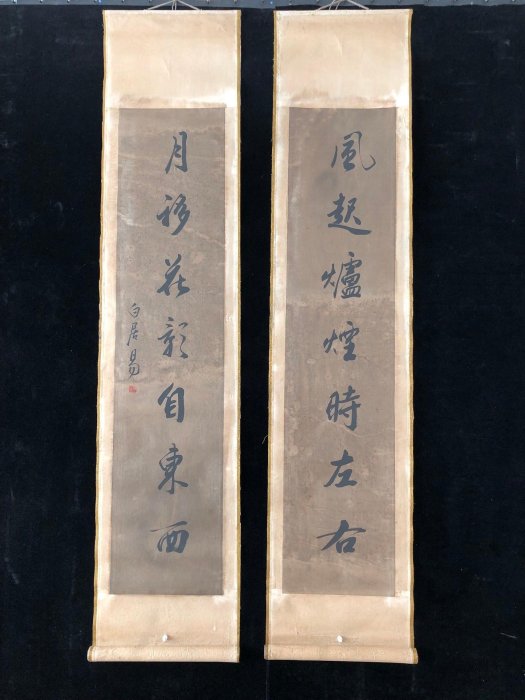 風起爐煙時左右
月移花影自東西
白居易